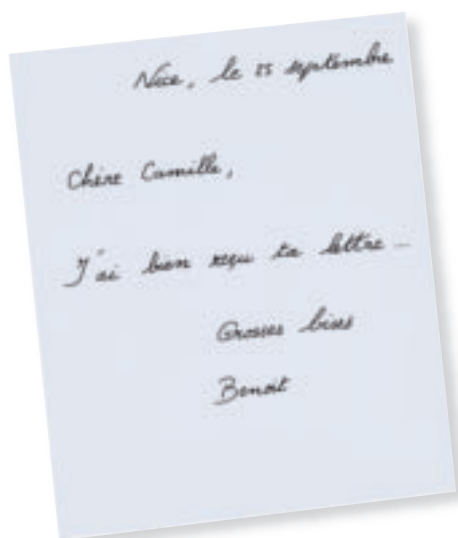 Nice, le 15 septembre
Chère Camille,
J'ai bien reçu ta lettre...
Grosses bises
Benoît